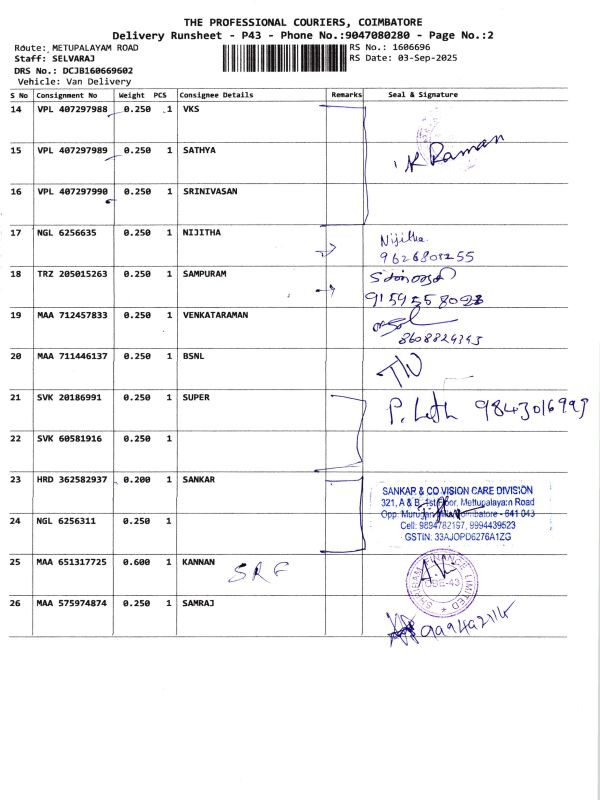 THE PROFESSIONAL COURIERS, COIMBATORE
Delivery Runsheet - P43 - Phone No.:9047080280 - Page No.:2
Route: METUPALAYAM ROAD RS No.: 1606696
Staff: SELVARAJ RS Date: 03-Sep-2025
DRS No.: DCJB160669602
Vehicle: Van Delivery
S No Consignment No Weight PCS Consignee Details Remarks Seal & Signature
14 VPL 407297988 0.250 1 VKS
15 VPL 407297989 0.250 1 SATHYA K Raman
16 VPL 407297990 0.250 1 SRINIVASAN
17 NGL 6256635 0.250 1 NIJITHA Nijitha.
9626808255
18 TRZ 205015263 0.250 1 SAMPURAM
19 MAA 712457833 0.250 1 VENKATARAMAN
8608824343
20 MAA 711446137 0.250 1 BSNL
21 SVK 20186991 0.250 1 SUPER
22 SVK 60581916 0.250 1
23 HRD 362582937 0.200 1 SANKAR SANKAR & CO VISION CARE DIVISION
321, A & B, 1st Floor, Mettupalayam Road
Coimbatore - 641 043
24 NGL 6256311 0.250 1 Cell: 9894782197, 9994439523
GSTIN: 33AJOPD6276A1ZG
25 MAA 651317725 0.600 1 KANNAN SRF
FINANCE LIMITED
26 MAA 575974874 0.250 1 SAMRAJ